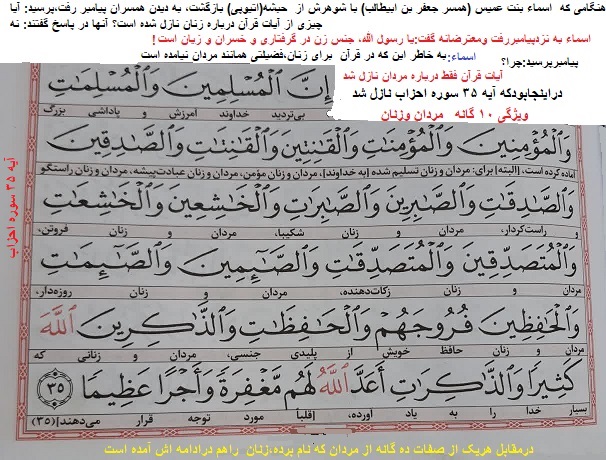 هنگامی که اسماء بنت عمیس (همسر جعفر بن ابیطالب) با شوهرش از حبشه(اتیوپی) بازگشت، به دیدن همسران پیامبر رفت،پرسید: آیا
چیزی از آیات قرآن درباره زنان نازل شده است؟ آنها در پاسخ گفتند: نه
اسماء به نزدپیامبررفت ومعترضانه گفت:یا رسول الله، جنس زن در گرفتاری و خسران و زیان است !
پیامبرپرسید:چرا؟ اسماء: به خاطر این که در قرآن برای زنان،فضیلتی همانند مردان نیامده است
آیات قرآن فقط درباره مردان نازل شد
دراینجابودکه آیه ۳۵ سوره احزاب نازل شد
ویژگی ۱۰ گانه مردان وزنان
إِنَّ ٱلْمُسْلِمِينَ وَٱلْمُسْلِمَٰتِ
بی‌تردید خداوند آمرزش و پاداشی بزرگ
وَٱلْمُؤْمِنِينَ وَٱلْمُؤْمِنَٰتِ وَٱلْقَٰنِتِينَ وَٱلْقَٰنِتَٰتِ وَٱلصَّٰدِقِينَ
آماده کرده است، [البته] برای: مردان و زنان تسلیم شده [به خداوند]، مردان و زنان مؤمن، مردان و زنان عبادت‌پیشه، مردان و زنان راستگو
وَٱلصَّٰدِقَٰتِ وَٱلصَّٰبِرِينَ وَٱلصَّٰبِرَٰتِ وَٱلْخَٰشِعِينَ وَٱلْخَٰشِعَٰتِ
و راست‌کردار، مردان و زنان شکیبا، مردان و زنان فروتن،
وَٱلْمُتَصَدِّقِينَ وَٱلْمُتَصَدِّقَٰتِ وَٱلصَّٰٓئِمِينَ وَٱلصَّٰٓئِمَٰتِ
مردان و زنان زکات‌دهنده، مردان و زنان روزه‌دار،
وَٱلْحَٰفِظِينَ فُرُوجَهُمْ وَٱلْحَٰفِظَٰتِ وَٱلذَّٰكِرِينَ ٱللَّهَ
مردان و زنان حافظ خویش از پلیدی جنسی، مردان و زنانی که
كَثِيرًا وَٱلذَّٰكِرَٰتِ أَعَدَّ ٱللَّهُ لَهُم مَّغْفِرَةً وَأَجْرًا عَظِيمًا ۳۵
بسیار خدا را به یاد آورده، [قلباً مورد توجه قرار می‌دهند] (۳۵)
آیه ۳۵ سوره احزاب
درمقابل هریک از صفات ده گانه از مردان که نام برده،زنان راهم درادامه اش آمده است